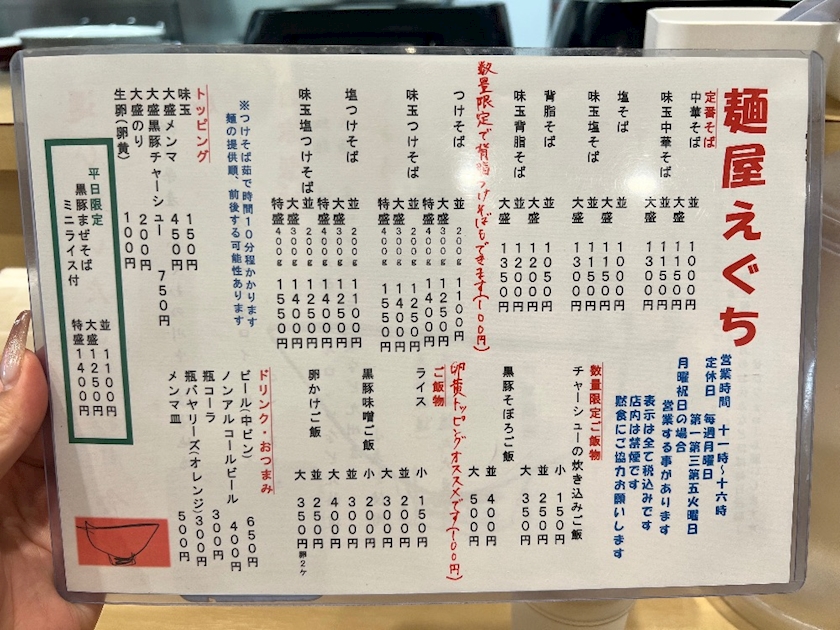 麺屋えぐち
営業時間 十一時~十六時
定休日 毎週月曜日
第一第三第五火曜日
月曜祝日の場合
営業する事があります
表示は全て税込みです
店内は禁煙です
黙食にご協力お願いします
定番そば
中華そば 並 1000円
大盛 1150円
味玉中華そば 並 1150円
大盛 1300円
塩そば 並 1000円
大盛 1150円
味玉塩そば 並 1150円
大盛 1300円
背脂そば 並 1050円
大盛 1200円
味玉背脂そば 並 1200円
大盛 1350円
数量限定で背脂つけそばもできます(100円)
つけそば 並 200g 1100円
大盛 300g 1250円
特盛 400g 1400円
味玉つけそば 並 200g 1250円
大盛 300g 1400円
特盛 400g 1550円
塩つけそば 並 200g 1100円
大盛 300g 1250円
特盛 400g 1400円
味玉塩つけそば 並 200g 1250円
大盛 300g 1400円
特盛 400g 1550円
※つけそば茹で時間10分程かかります
麺の提供順、前後する可能性あります
トッピング
味玉 150円
大盛メンマ 450円
大盛黒豚チャーシュー 750円
大盛のり 200円
生卵(卵黄) 100円
平日限定
黒豚まぜそば 並 1100円
ミニライス付 大盛 1250円
特盛 1400円
数量限定ご飯物
チャーシューの炊き込みご飯 小 150円
並 250円
大 350円
黒豚そぼろご飯 並 400円
大 500円
卵黄トッピングオススメです(100円)
ご飯物
ライス 小 150円
並 200円
大 300円
黒豚味噌ご飯 小 200円
並 300円
大 400円
卵かけご飯 並 250円
大 350円 卵2ケ
ドリンク・おつまみ
ビール(中ビン) 650円
ノンアルコールビール 400円
瓶コーラ 300円
瓶バヤリーズ(オレンジ) 300円
メンマ皿 500円